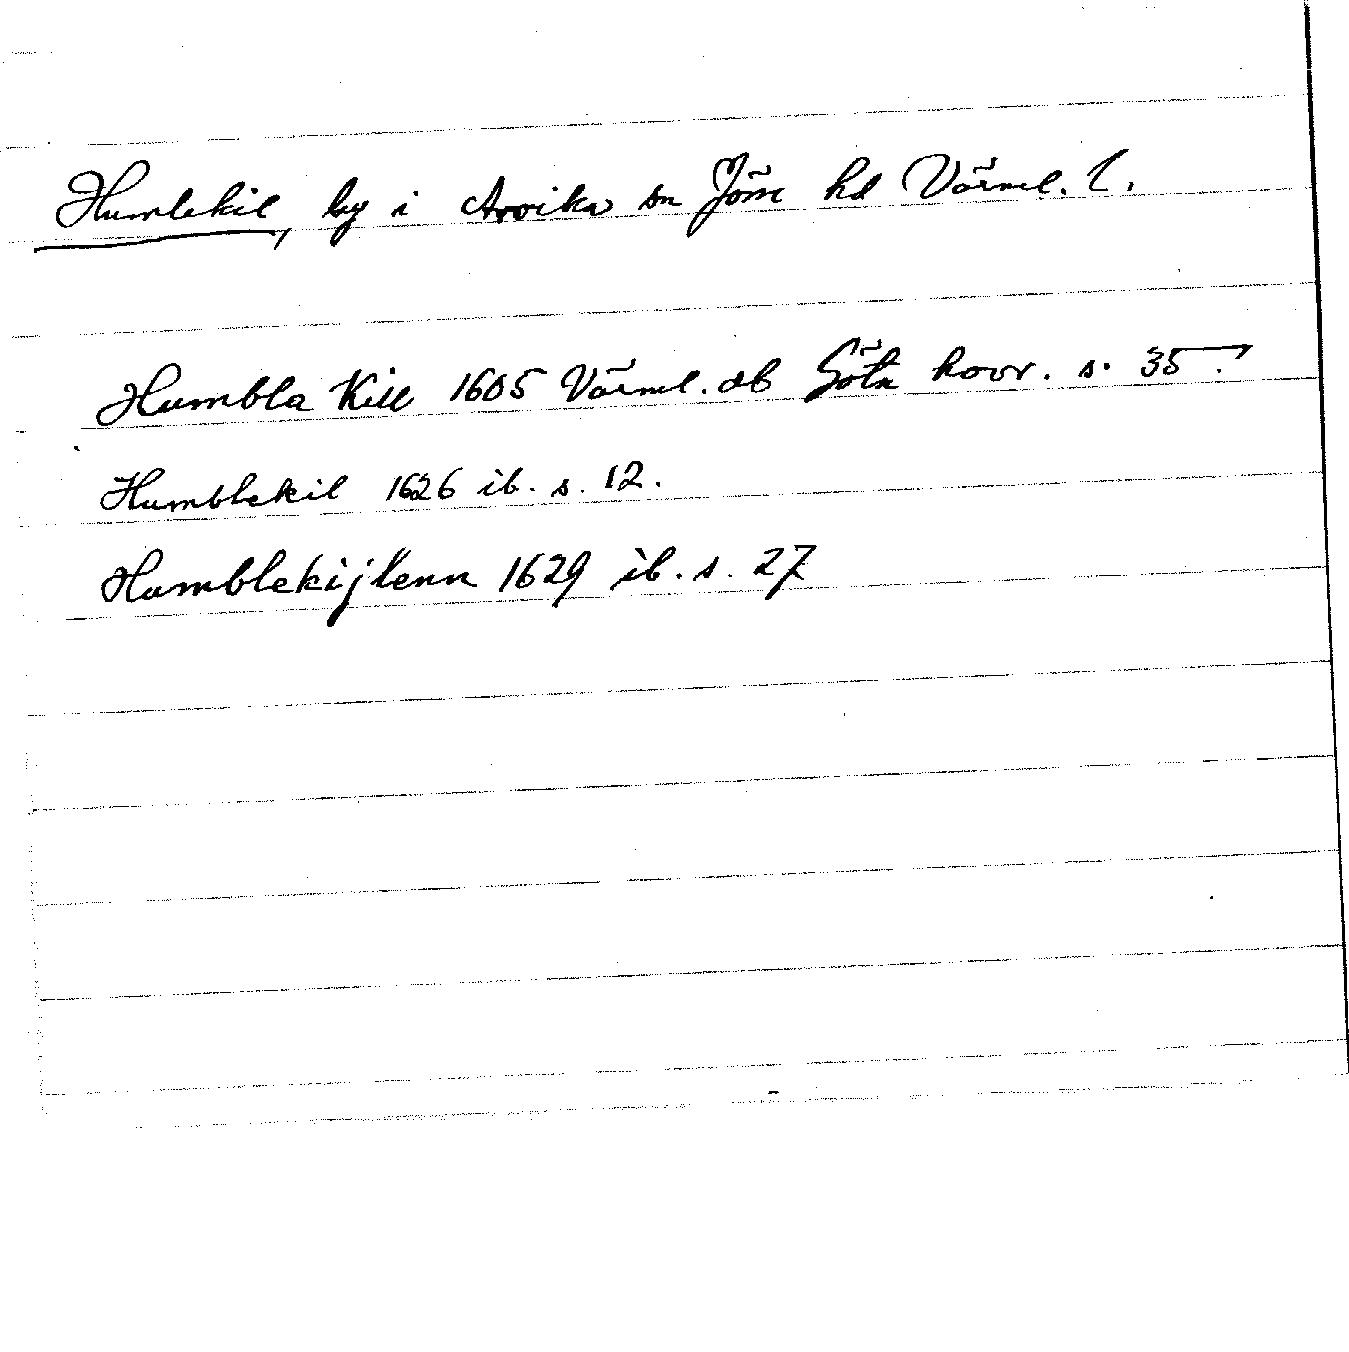 Humlekil, by i Arvika sn Jösse hd Värml. l.
Humbla Kill 1605 Värml. db Göta hovr. s. 35.
Humblekil 1626 ib. s. 12.
Humblekijlenn 1629 ib. s. 27